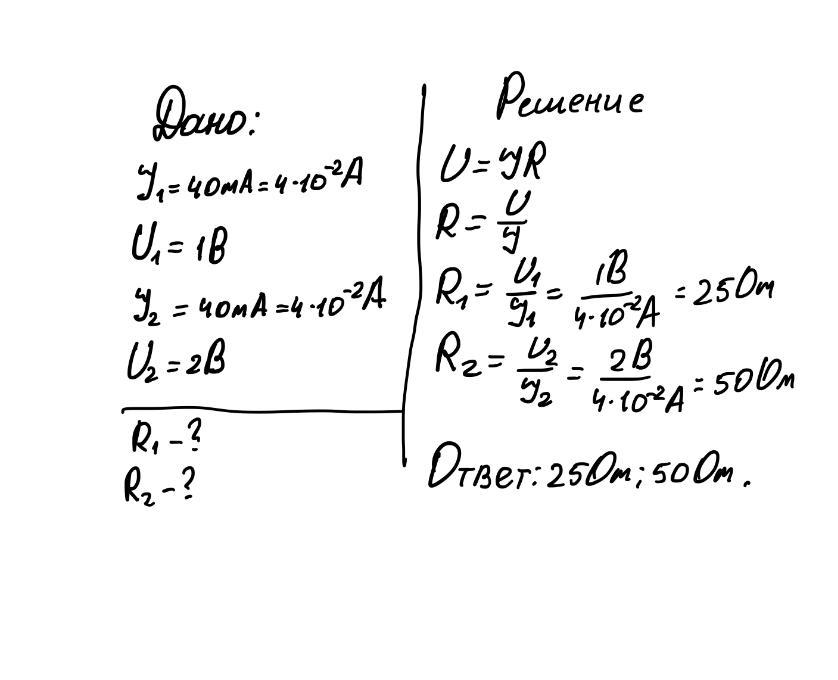 Дано:
У₁ = 40мА = 4·10⁻²А
U₁ = 1В
У₂ = 40мА = 4·10⁻²А
U₂ = 2В
R₁ - ?
R₂ - ?
Решение
U = УR
R = U/У
R₁ = U₁/У₁ = 1В/4·10⁻²А = 25Ом
R₂ = U₂/У₂ = 2В/4·10⁻²А = 50Ом
Ответ: 25Ом; 50Ом.